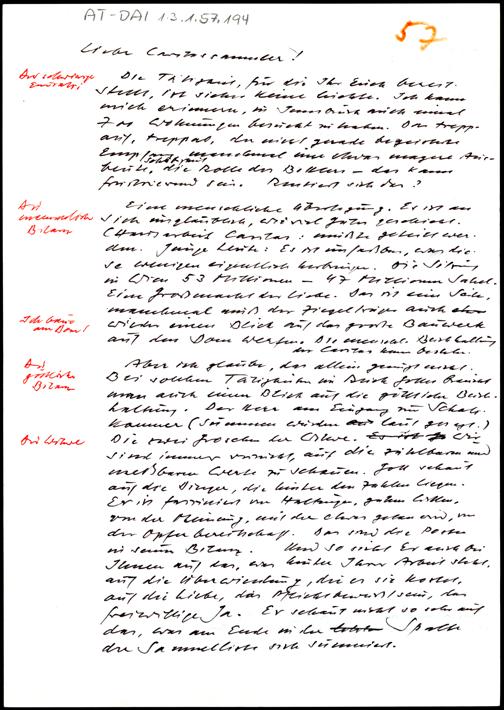 AT-DAI 1.3.1.57.194
57
Liebe Caritassammler!
Der schwierige
Einsatz!
Die Tätigkeit, für die Ihr Euch bereit
stellt, ist sicher keine leichte. Ich kann
mich erinnern, in Innsbruck auch einmal
700 Wohnungen besucht zu haben. Das trepp-
auf, treppab, der nicht gerade begeisterte
Empfang, manchmal eine etwas magere Aus-
beute, die Rolle des Bettlers – das kann
frustrierend sein. Rentiert sich das?
Die
menschliche
Bilanz
Eine menschliche Überlegung. Es ist an
sich unglaublich, wieviel Gutes geschieht.
(Hausarbeit Caritas: müßte geleistet wer-
den. Junge Leute: Es ist unfaßbar, was die-
se wenigen eigentlich
in Wien 53 Millionen – 47 Millionen
Eine Großmacht der Liebe. Das ist eine Seite,
Ich baue
am Dom!
manchmal muß der Ziegelträger auch
wieder einen Blick auf das große Bauwerk
auf den Dom werfen. Die menschl. Buchhaltung
der Caritas kann bestehen.
Die
göttliche
Bilanz
Aber ich glaube, das allein genügt nicht.
Bei solchen Tätigkeiten im Reich Gottes braucht
man auch einen Blick auf die göttliche Buch-
haltung. Der Herr am Eingang zur Schatz-
kammer (Summen wurden laut gesagt.)
Die Witwe
Die zwei Groschen der Witwe. Wir
sind immer versucht, auf die zählbaren und
meßbaren Werte zu schauen. Gott schaut
auf die Dinge, die hinter den Zahlen liegen.
Er ist fasziniert von Haltungen, guten Willen,
von der Meinung, mit der etwas getan wird, von
der Opferbereitschaft. Das sind die Posten
in seiner Bilanz. Und so sieht Er auch bei
Ihnen auf das, was hinter Ihrer Arbeit steht,
auf die Überwindung, die es sie kostet,
auf die Liebe, das Pflichtbewußtsein, das
freiwillige Ja. Er schaut nicht so sehr auf
das, was am Ende in der letzten Spalte
der Sammelliste sich summiert.